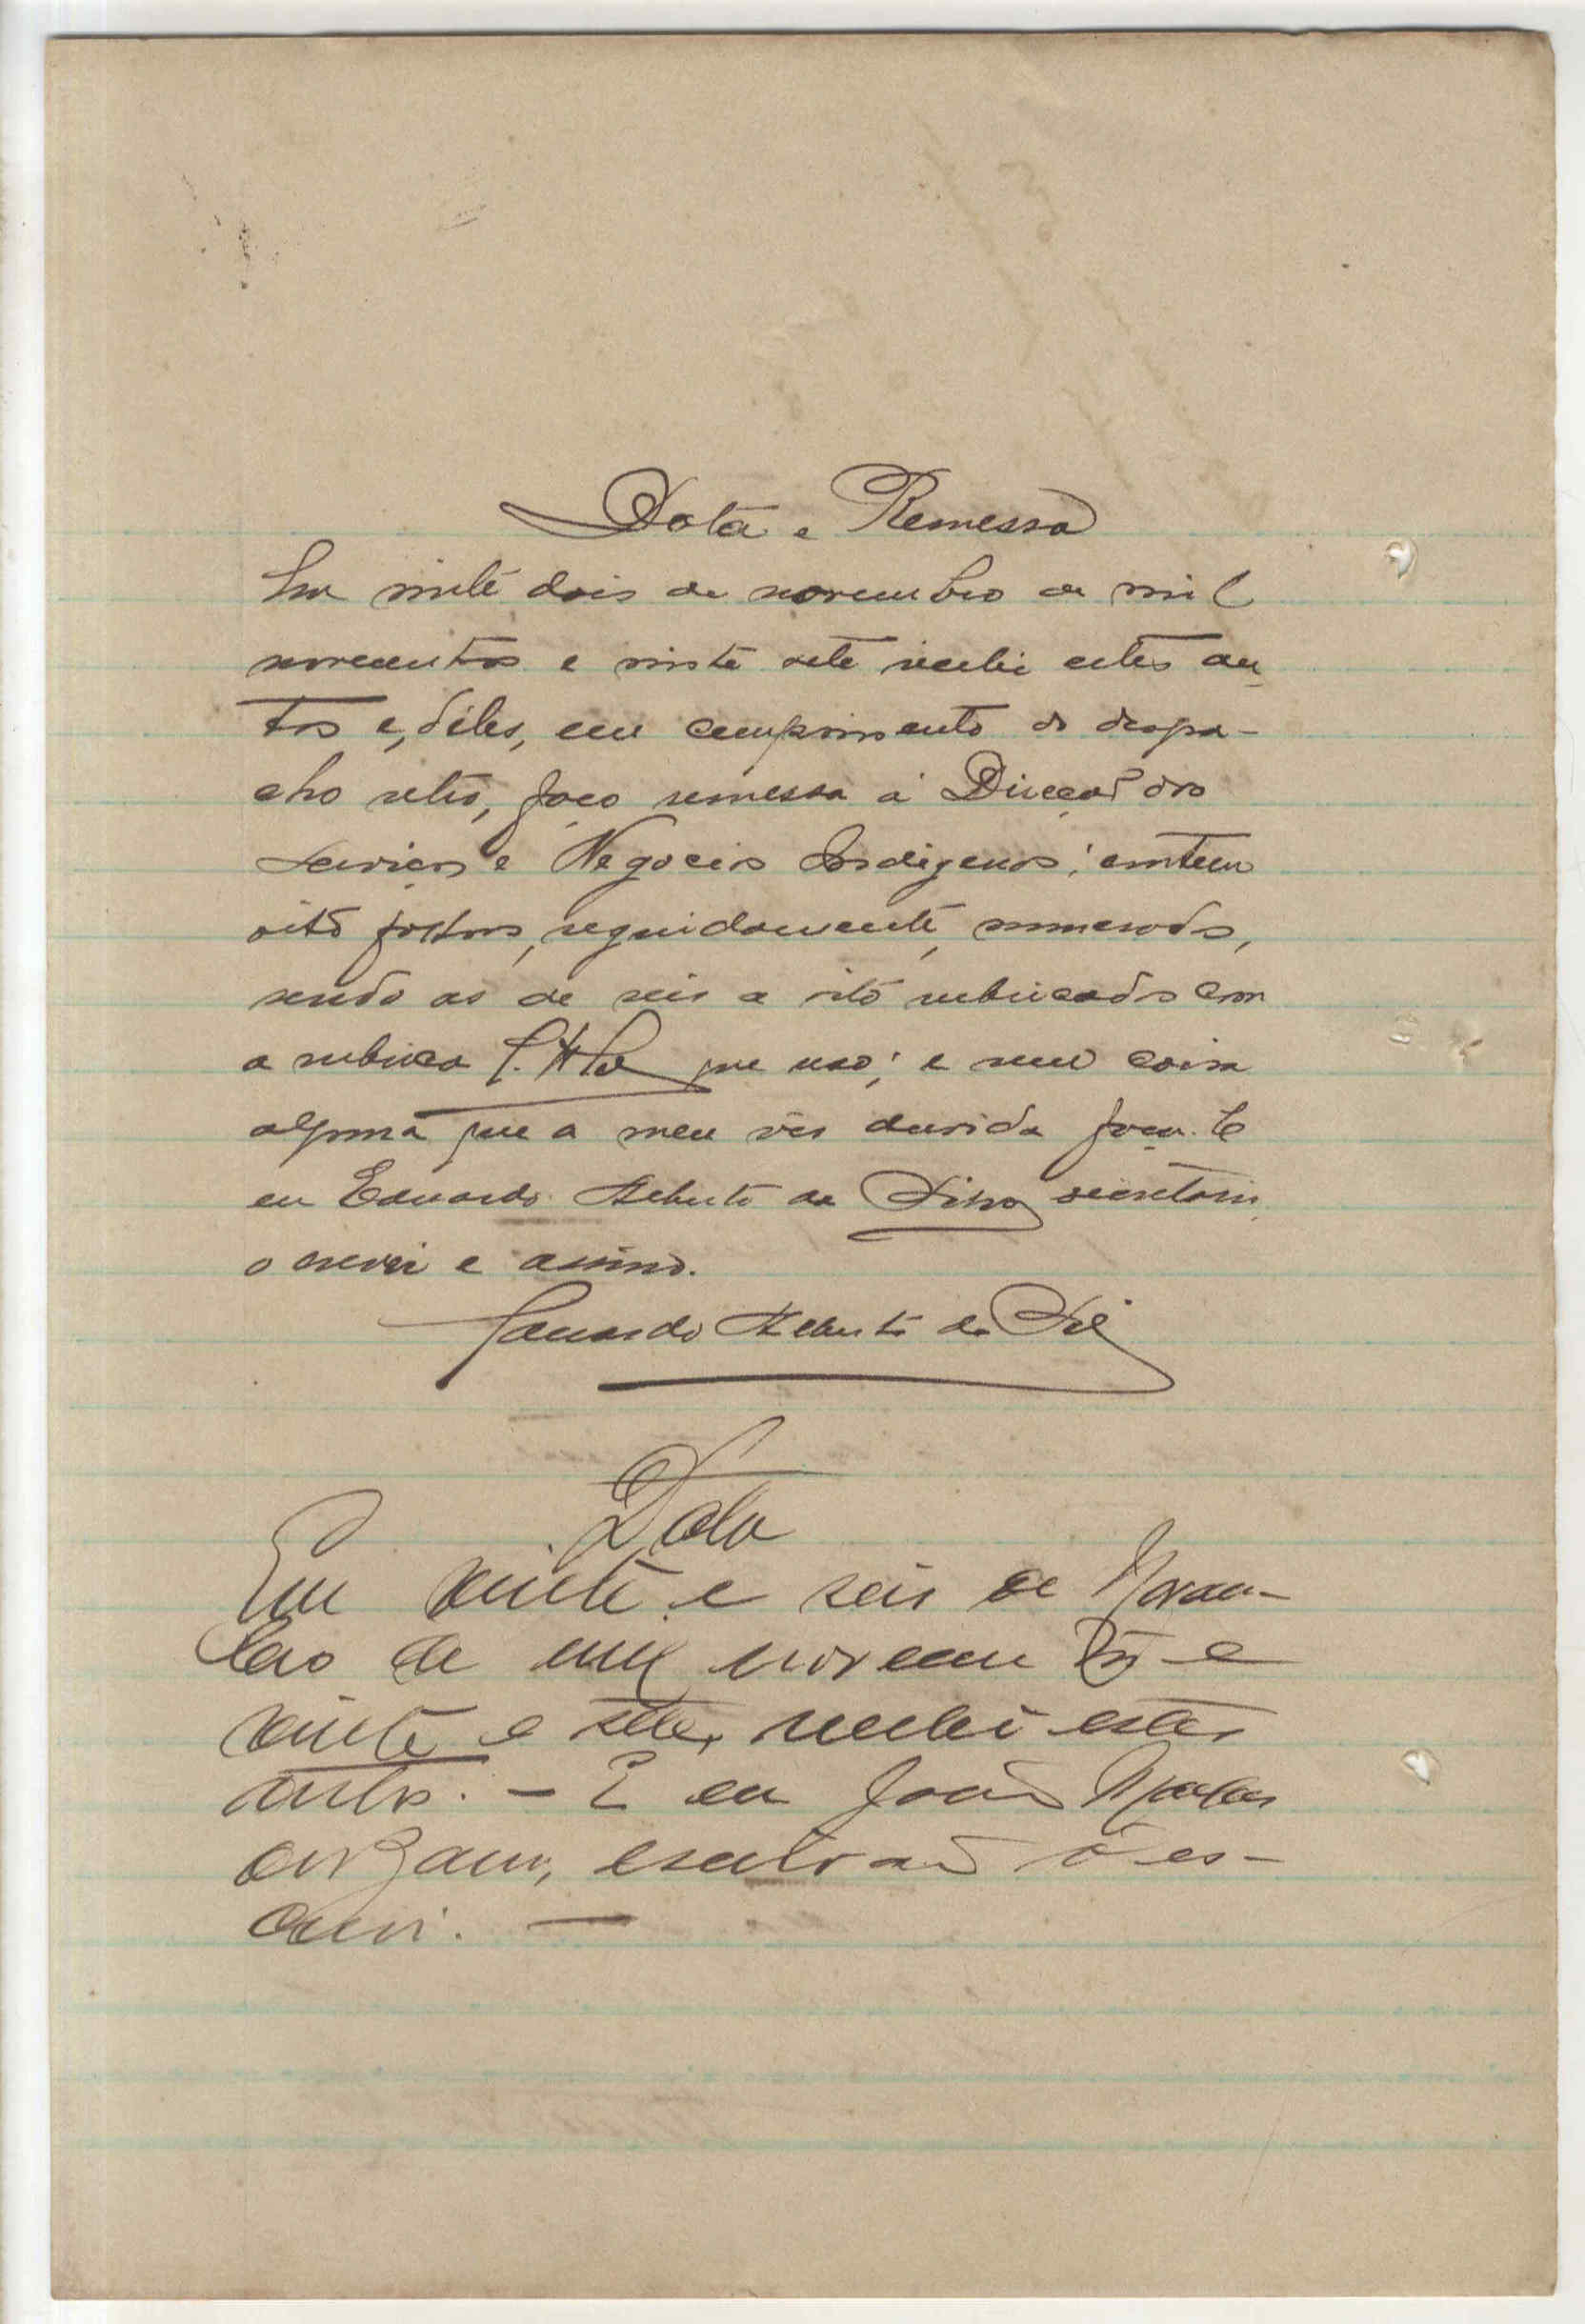 Data e Remessa
Em vinte dois de novembro de mil
novecentos e vinte sete recebi estes au-
tos e, dêles, em cumprimento do despa-
cho retro, faço remessa á Direcção dos
Serviços e Negocios Indigenas; contem
oito folhas, seguidamente, numeradas,
sendo as de seis a oito rubricadas com
a rubrica que uso; e sem coisa
alguma que a meu vêr duvida faça. E
eu Eduardo Alberto da Silva secretario
o escrevi e assino.
Eduardo Alberto da Silva
Data
Em vinte e seis de Novem-
bro de mil novecentos e
vinte e sete, recebi estes
autos. — E eu João
escrivão o es-
crevi. —